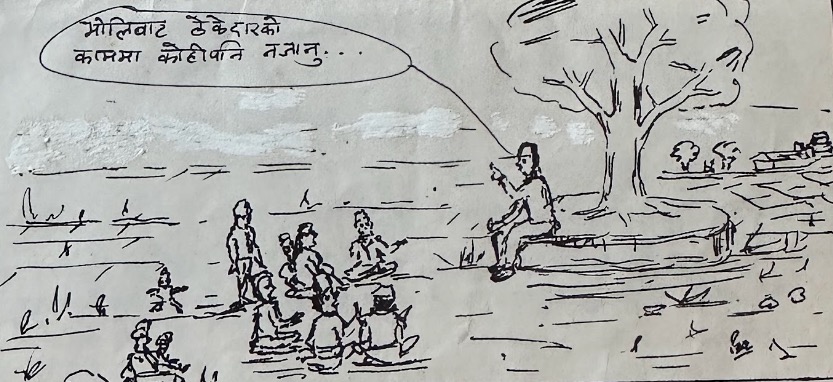 भोलिबाट ठेकेदारको
काममा कोहीपनि नजानु...